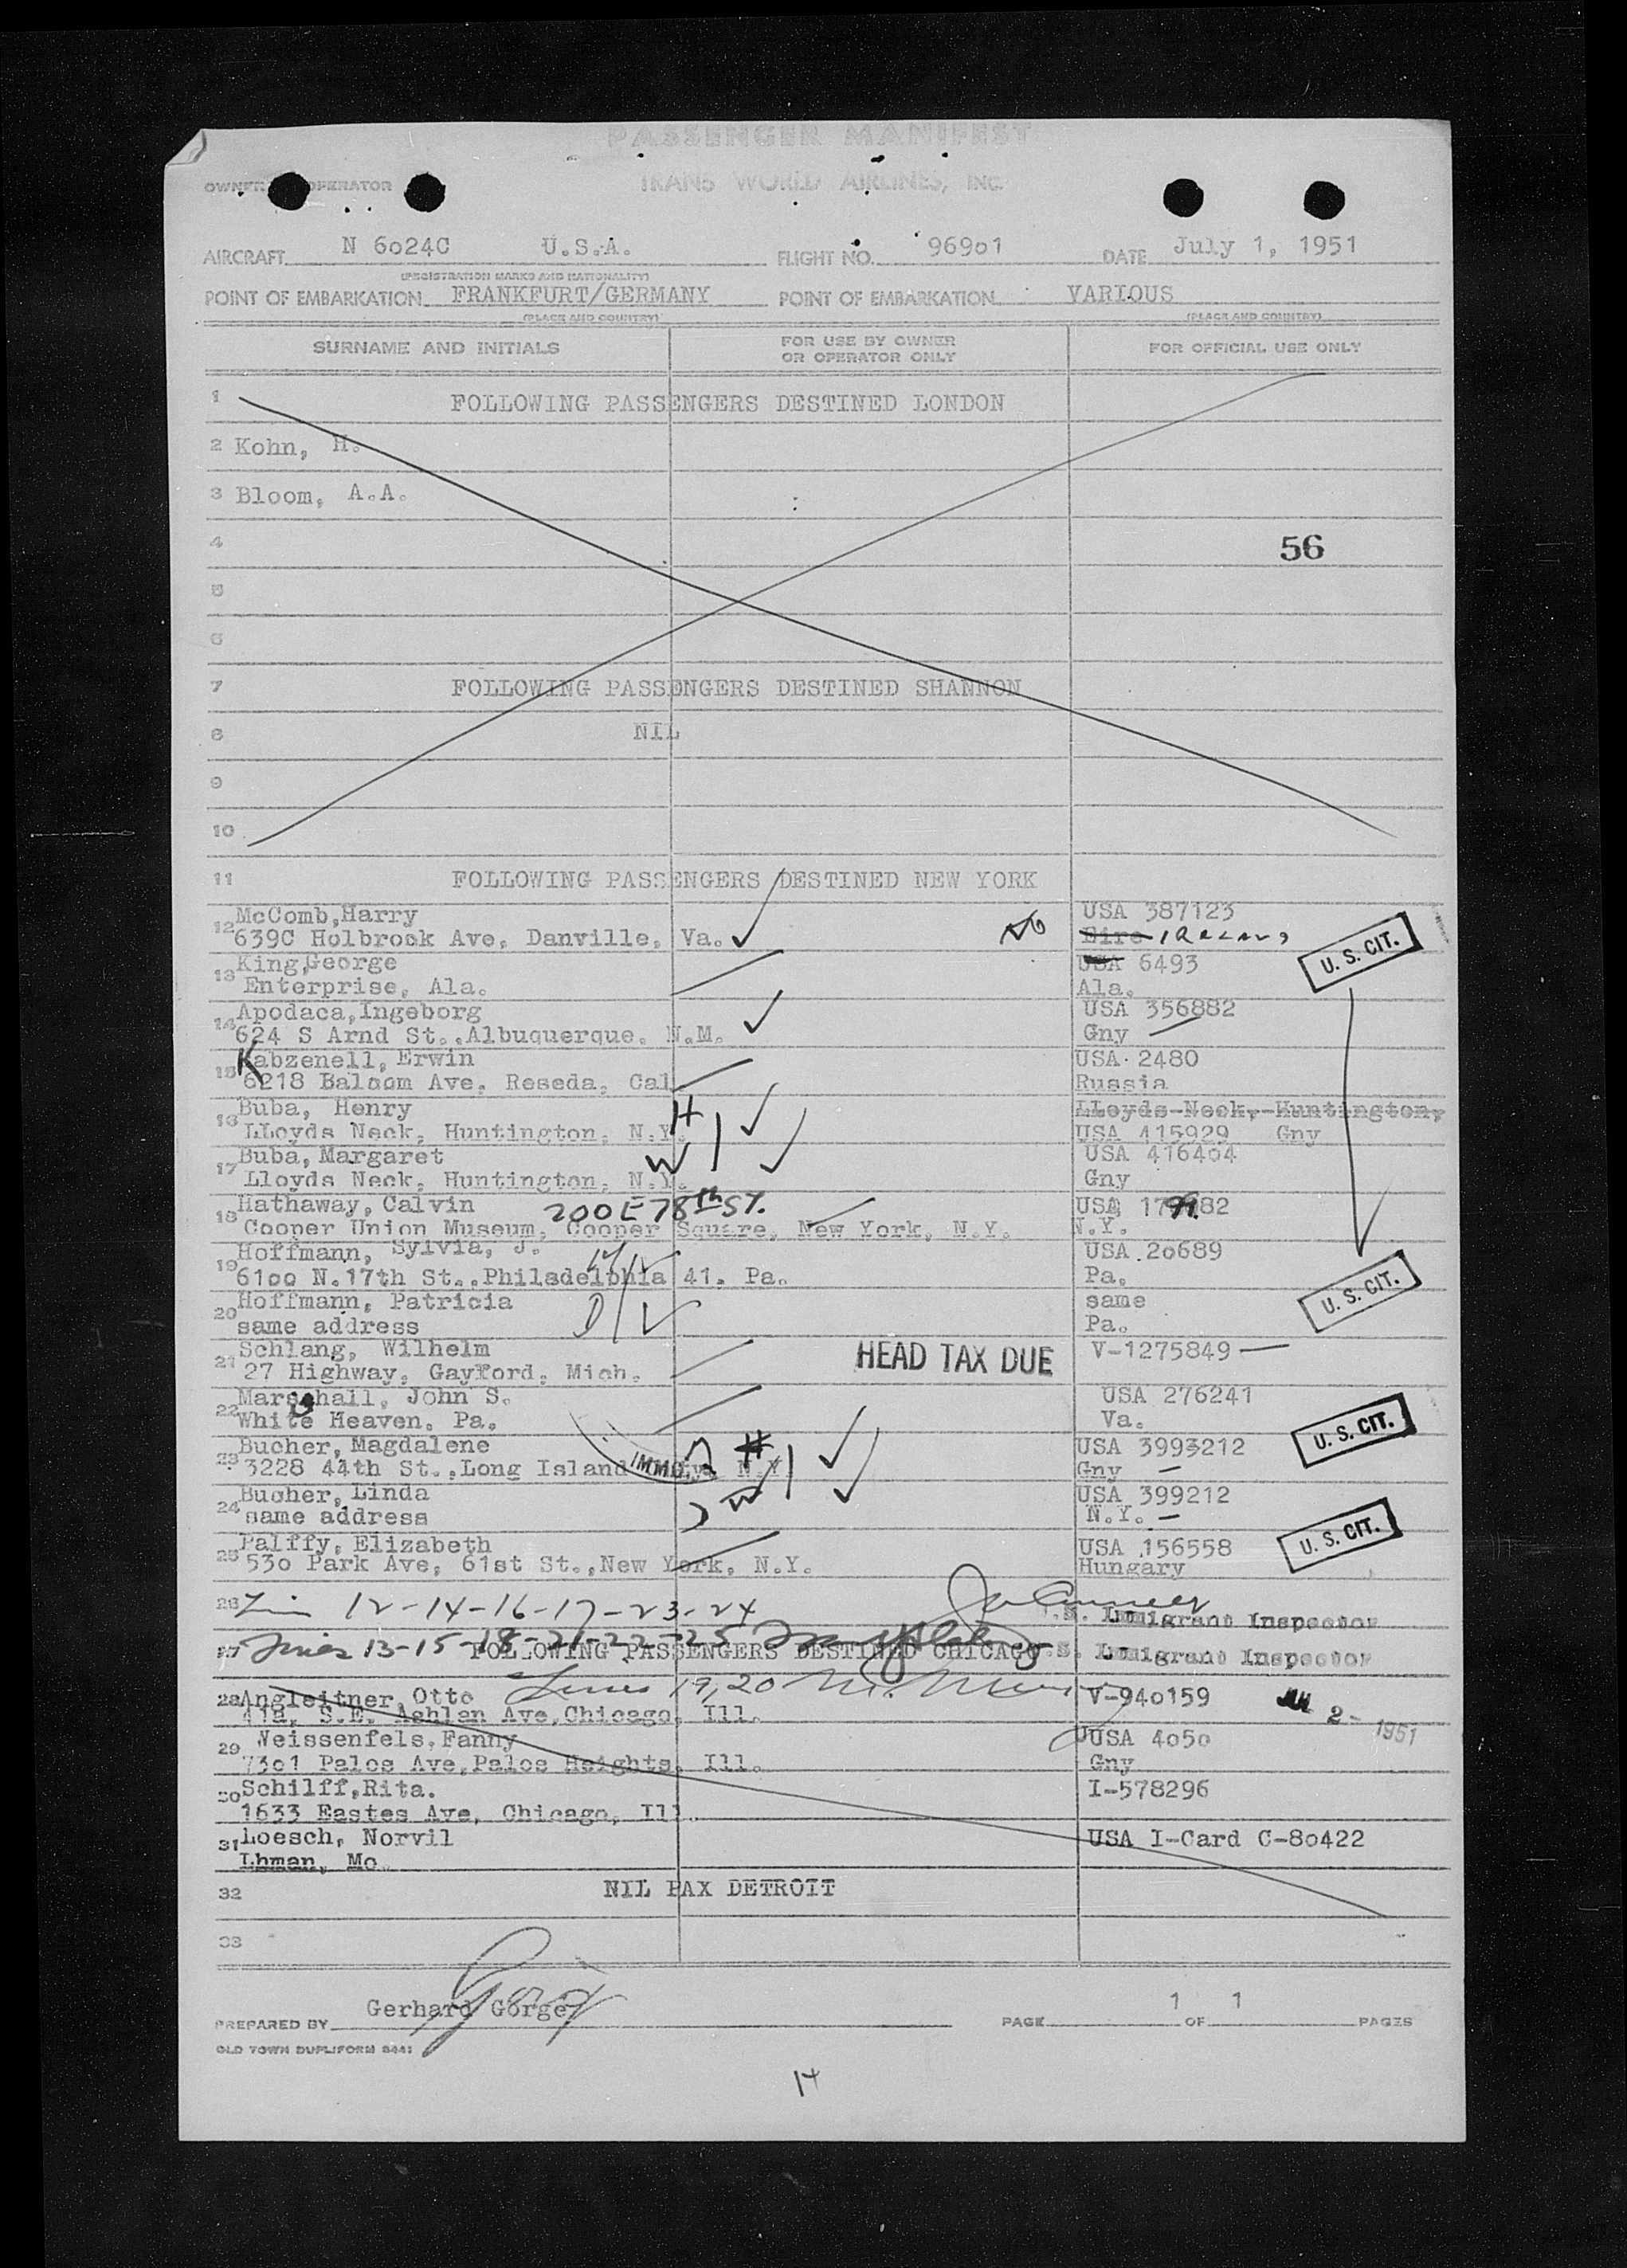 PASSENGER MANIFEST
OWNER OR OPERATOR TRANS WORLD AIRLINES, INC.
AIRCRAFT N 6024C U.S.A. FLIGHT NO. 96901 DATE July 1, 1951
(REGISTRATION MARKS AND NATIONALITY)
POINT OF EMBARKATION FRANKFURT/GERMANY POINT OF EMBARKATION VARIOUS
(PLACE AND COUNTRY) (PLACE AND COUNTRY)
SURNAME AND INITIALS FOR USE BY OWNER OR OPERATOR ONLY FOR OFFICIAL USE ONLY
1 FOLLOWING PASSENGERS DESTINED LONDON
2 Kohn, H.
3 Bloom, A.A.
4 56
5
6
7 FOLLOWING PASSENGERS DESTINED SHANNON
8 NIL
9
10
11 FOLLOWING PASSENGERS DESTINED NEW YORK
McComb,Harry USA 387123
12 639C Holbrook Ave, Danville, Va. Eire IRELAND U. S. CIT.
King,George USA 6493
13 Enterprise, Ala. Ala.
Apodaca,Ingeborg USA 356882
14 624 S Arnd St.,Albuquerque. N.M. Gny
Kabzenell, Erwin USA 2480
15 6218 Balcom Ave. Reseda. Cal Russia
Buba, Henry H LLoyds Neck, Huntington,
16 LLoyds Neck, Huntington, N.Y. USA 415929 Gny
Buba, Margaret W USA 416404
17 Lloyds Neck, Huntington, N.Y. Gny
Hathaway, Calvin 200 E 78th ST. USA 82
18 Cooper Union Museum, Cooper Square, New York, N.Y. N.Y.
Hoffmann, Sylvia, J. USA 20689
19 6100 N.17th St.,Philadelphia 41. Pa. Pa.
Hoffmann, Patricia D same U. S. CIT.
20 same address Pa.
Schlang, Wilhelm HEAD TAX DUE V-1275849
21 27 Highway, Gaylord, Mich.
Marshall, John S. USA 276241
22 White Heaven. Pa. Va. U. S. CIT.
Bucher, Magdalene H USA 3993212
23 3228 44th St.,Long Island N.Y. Gny
IMMG.
Bucher, Linda W USA 399212
24 same address N.Y.
Palffy, Elizabeth USA 156558 U. S. CIT.
25 530 Park Ave, 61st St.,New York, N.Y. Hungary
26 12-14-16-17-23-24 Immigrant Inspector
27 Lines 13-15-18-21-22-25 Immigrant Inspector
FOLLOWING PASSENGERS DESTINED CHICAGO
Lines 19,20
28 Angleitner, Otto V-940159 JUL 2- 1951
41a, S.E. Ashlan Ave,Chicago, Ill.
29 Weissenfels,Fanny USA 4050
7301 Palos Ave,Palos Heights, Ill. Gny
30 Schilff,Rita. I-578296
1633 Eastes Ave, Chicago, Ill.
31 Loesch, Norvil USA I-Card C-80422
Lhman, Mo.
32 NIL PAX DETROIT
33
PREPARED BY Gerhard Gorge PAGE 1 OF 1 PAGES
OLD TOWN DUPLIFORM 8441
14